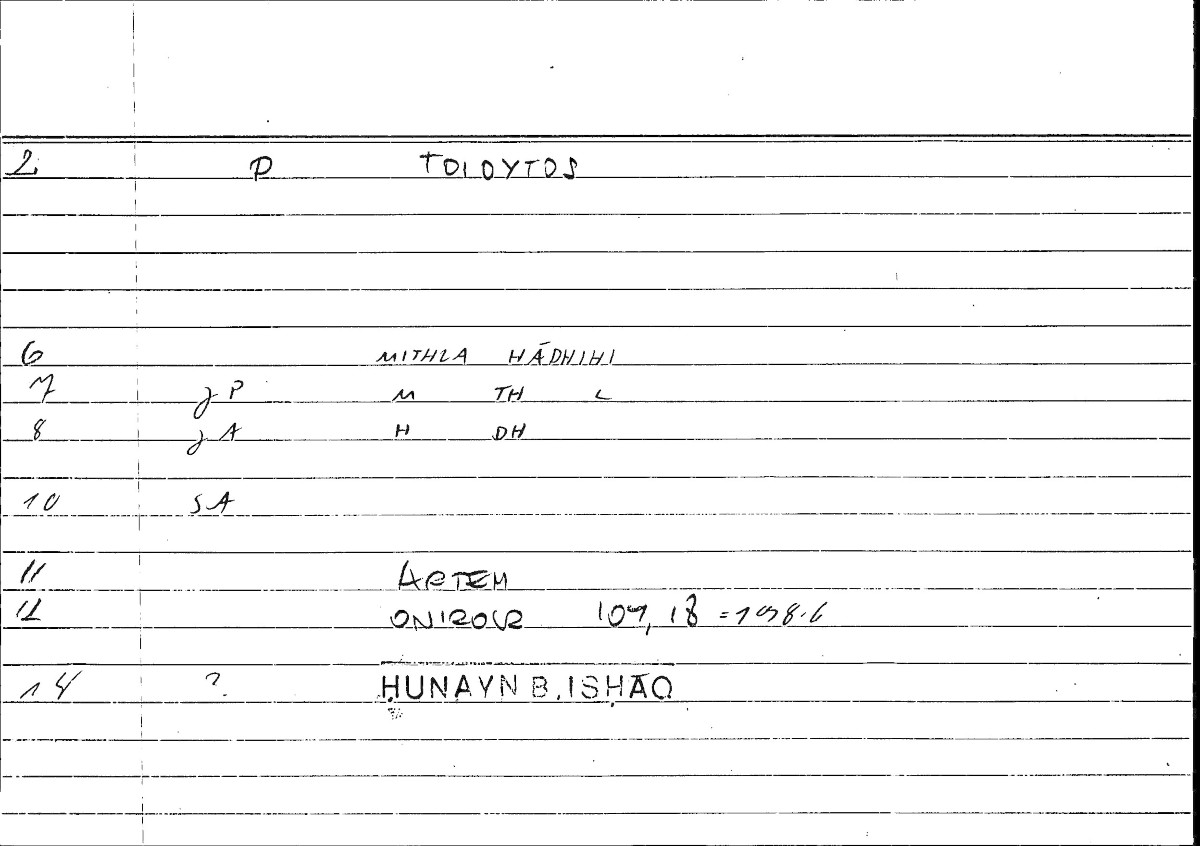 2. P TOIOYTOS
6 MITHLA HĀDHIHI
7 J P M TH L
8 J A H DH
10 SA
11 ARTEM
12 ONIROCR 107, 18 =198.6
14 ? ḤUNAYN B. ISḤĀQ